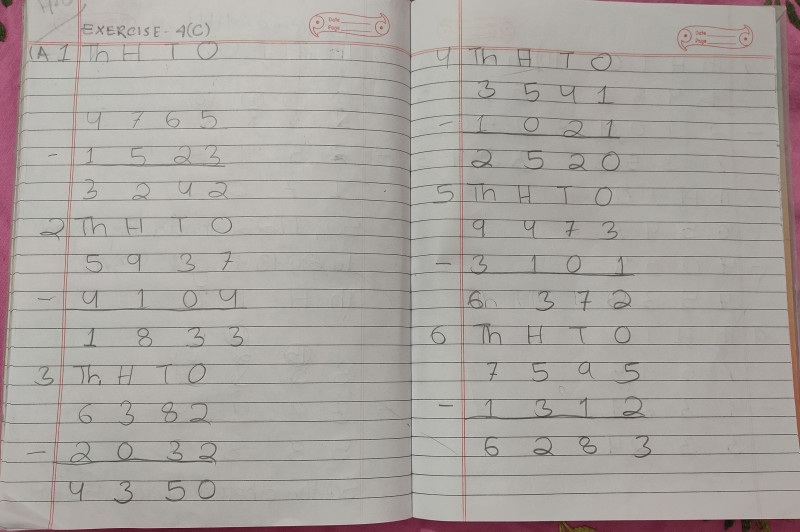 EXERCISE - 4(C)
Date
Page
(A 1 Th H T O
4 7 6 5
- 1 5 2 3
3 2 4 2
2 Th H T O
5 9 3 7
- 4 1 0 4
1 8 3 3
3 Th H T O
6 3 8 2
- 2 0 3 2
4 3 5 0
Date
Page
4 Th H T O
3 5 4 1
- 1 0 2 1
2 5 2 0
5 Th H T O
9 4 7 3
- 3 1 0 1
6 3 7 2
6 Th H T O
7 5 9 5
- 1 3 1 2
6 2 8 3